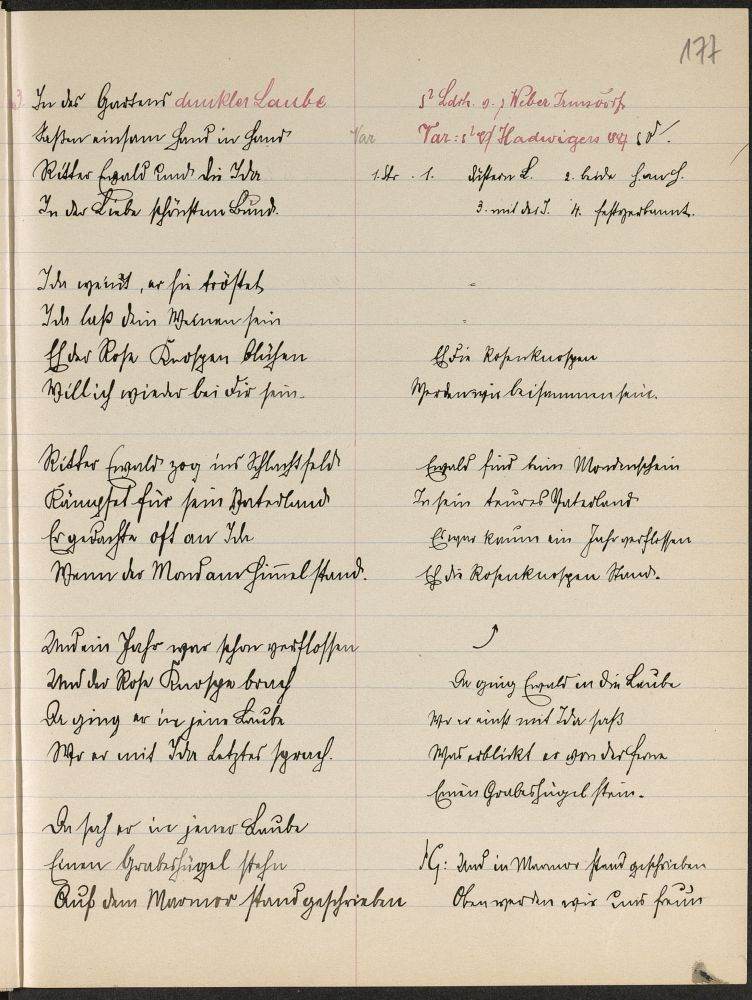 177
3. In des Gartens dunkler Laube
Saßen einsam Hand in Hand
Ritter Ewald und die Ida
In der Liebe schönstem Bund.
Ida weint, er sie tröstet
Ida laß dein Weinen sein
Eh der Rose Knospen blühen
Will ich wieder bei dir sein.
Ritter Ewald zog ins Schlachtfeld
Kämpfet für sein Vaterland
Er gedachte oft an Ida
Wenn der Mond am Himmel stand.
Und ein Jahr war schon verflossen
Und der Rose Knospe brach
Da ging er in jene Laube
Wo er mit Ida letztes sprach.
Da sah er in jener Laube
Einen Grabeshügel stehn
Auf dem Marmor stand geschrieben
Weber Irmsdorf
Var
Var: Hadwigers
1. Str. 1. düstern L. 2. beide H. an H.
3. mit der I. 4. festverbannt.
Eh die Rosenknospen
Werden wir beisammen sein.
Ewald beim Mondenschein
In sein teures Vaterland
Es war kaum ein Jahr verflossen
Eh die Rosenknospen stand.
Da ging Ewald in die Laube
Wo er einst mit Ida saß
Was erblickt er von der Ferne
Einen Grabeshügel stein.
N: Und in Marmor stand geschrieben
Oben werden wir uns freun